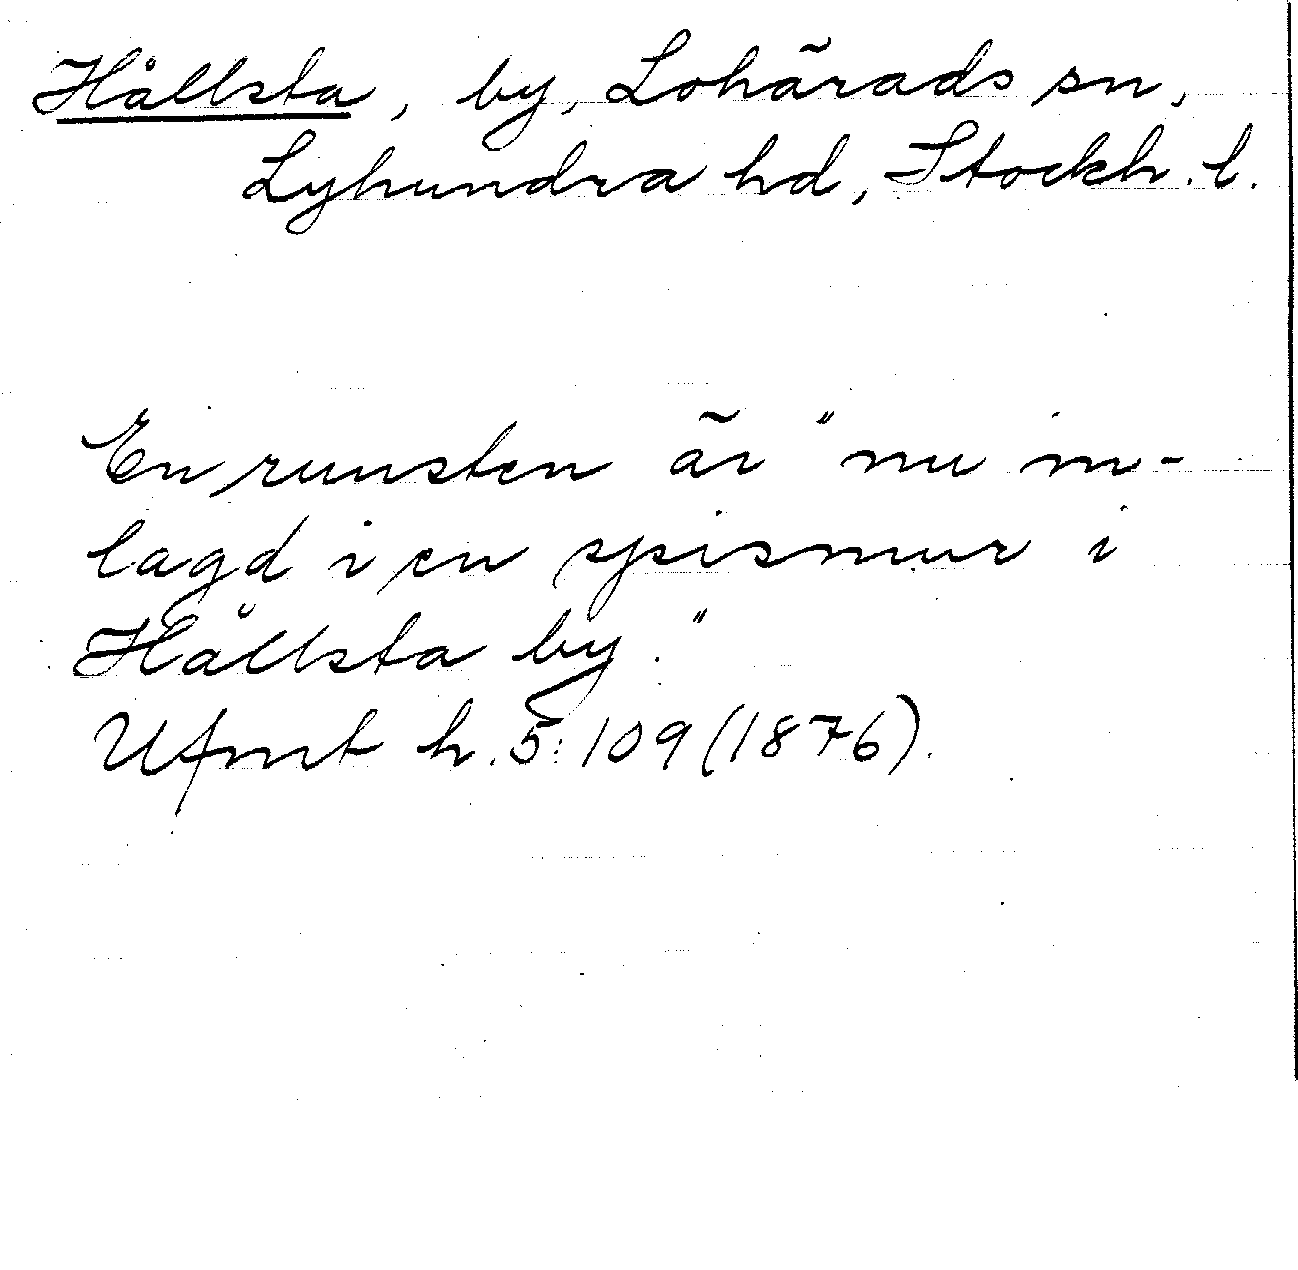 Hållsta, by, Lohärads sn,
Lyhundra hd, Stockh. l.
En runsten är "nu in-
lagd i en spismur i
Hållsta by."
Ufmt h. 5: 109 (1876).